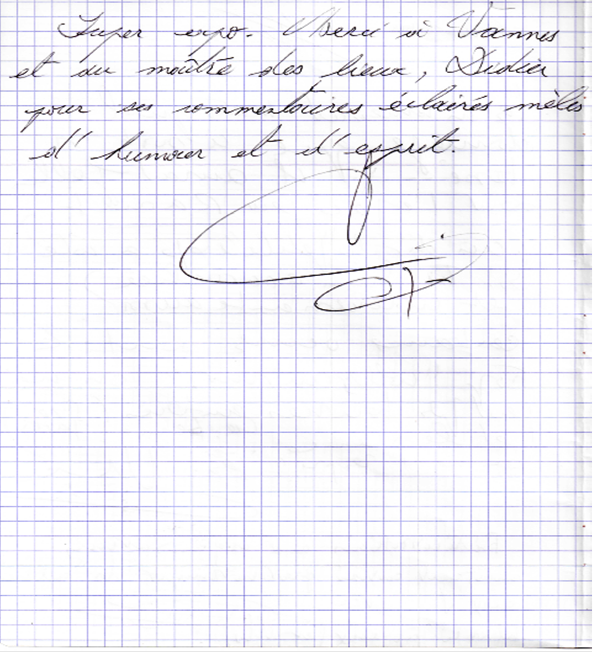 Super expo. Merci à Vannes
et au maître des lieux, Didier
pour ses commentaires éclairés mêlés
d'humour et d'esprit.